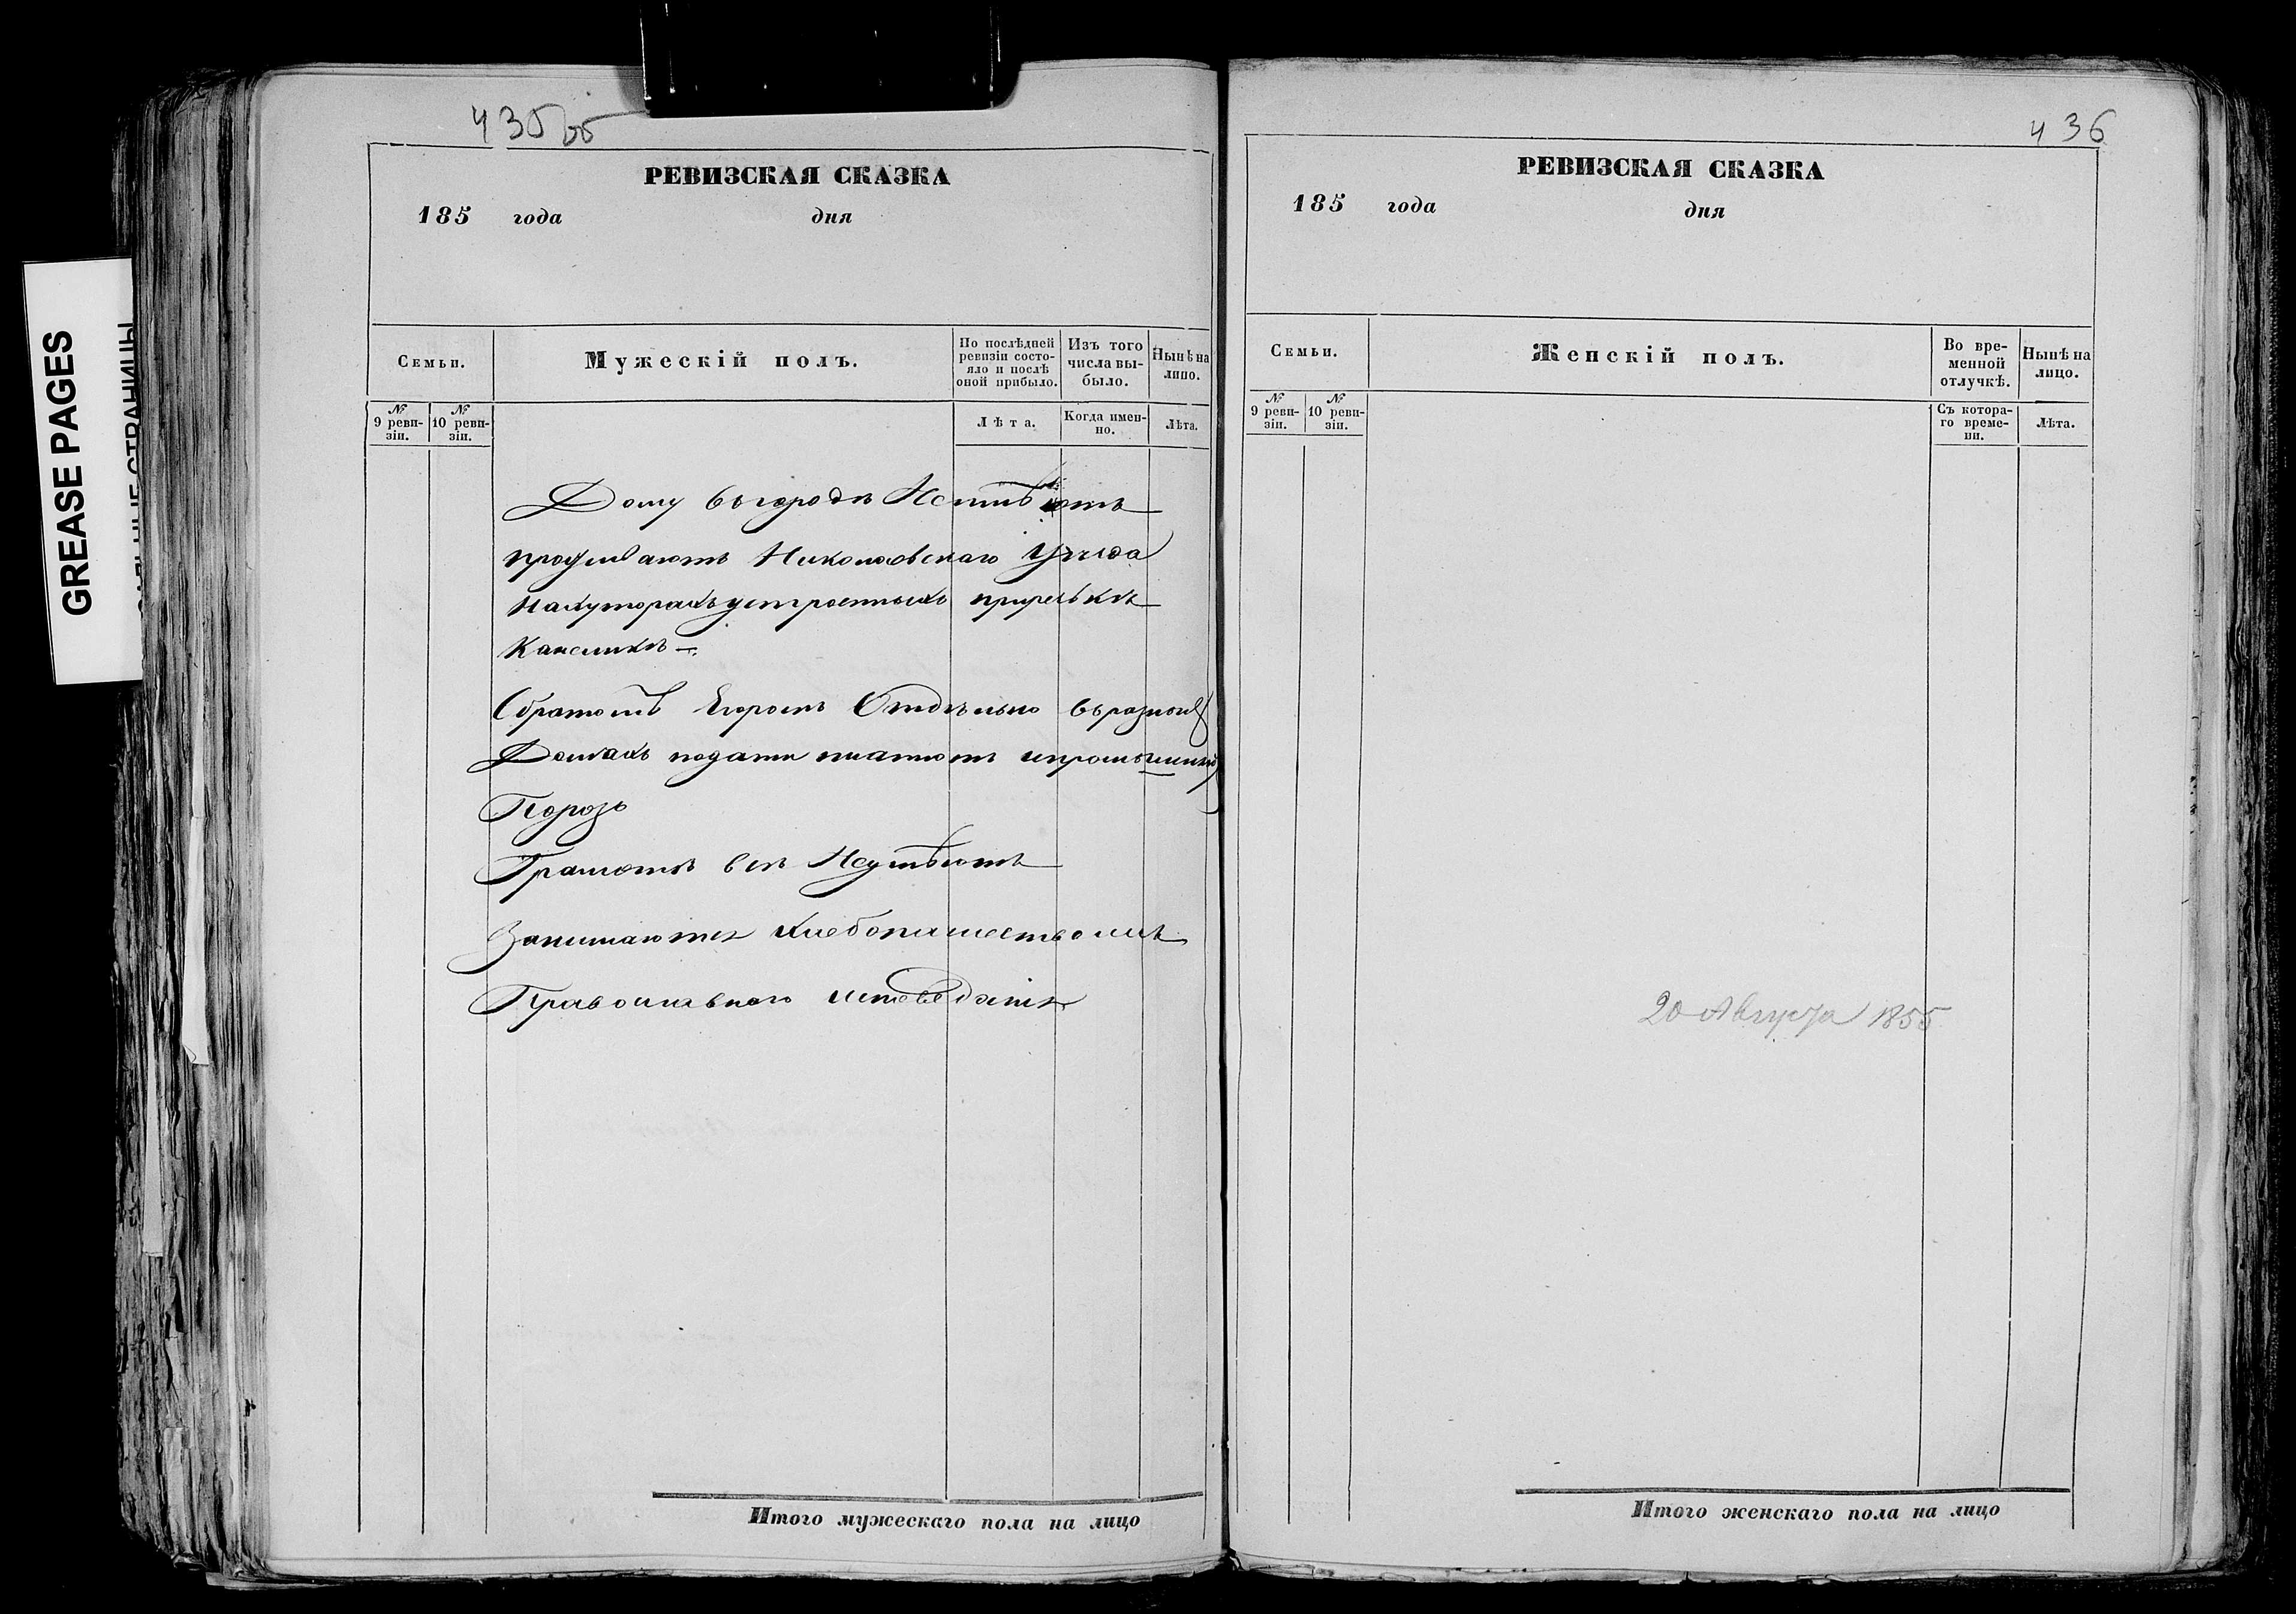 435об
РЕВИЗСКАЯ СКАЗКА
185 года дня
Семьи.
Мужескій полъ.
По послѣдней ревизіи состояло и послѣ оной прибыло.
Изъ того числа выбыло.
Нынѣ на лицо.
№ 9 ревизіи.
№ 10 ревизіи.
Лѣта.
Когда именно.
Лѣта.
Дому въ городѣ Неимѣютъ
проживаютъ Николаевскаго Уезда
на хуторахъ устроенныхъ при речкѣ
Камеликѣ
Сбратомъ Егоромъ Отдѣльно въ разныхъ
Домахъ подати платютъ
Порозь
Грамотѣ всѣ Неумѣютъ
Занимаются Хлебопашествомъ
Православнаго исповеданія
Итого мужескаго пола на лицо
436
РЕВИЗСКАЯ СКАЗКА
185 года дня
Семьи.
Женскій полъ.
Во временной отлучкѣ.
Нынѣ на лицо.
№ 9 ревизіи.
№ 10 ревизіи.
Съ котораго времени.
Лѣта.
20 Августа 1855
Итого женскаго пола на лицо
GREASE PAGES